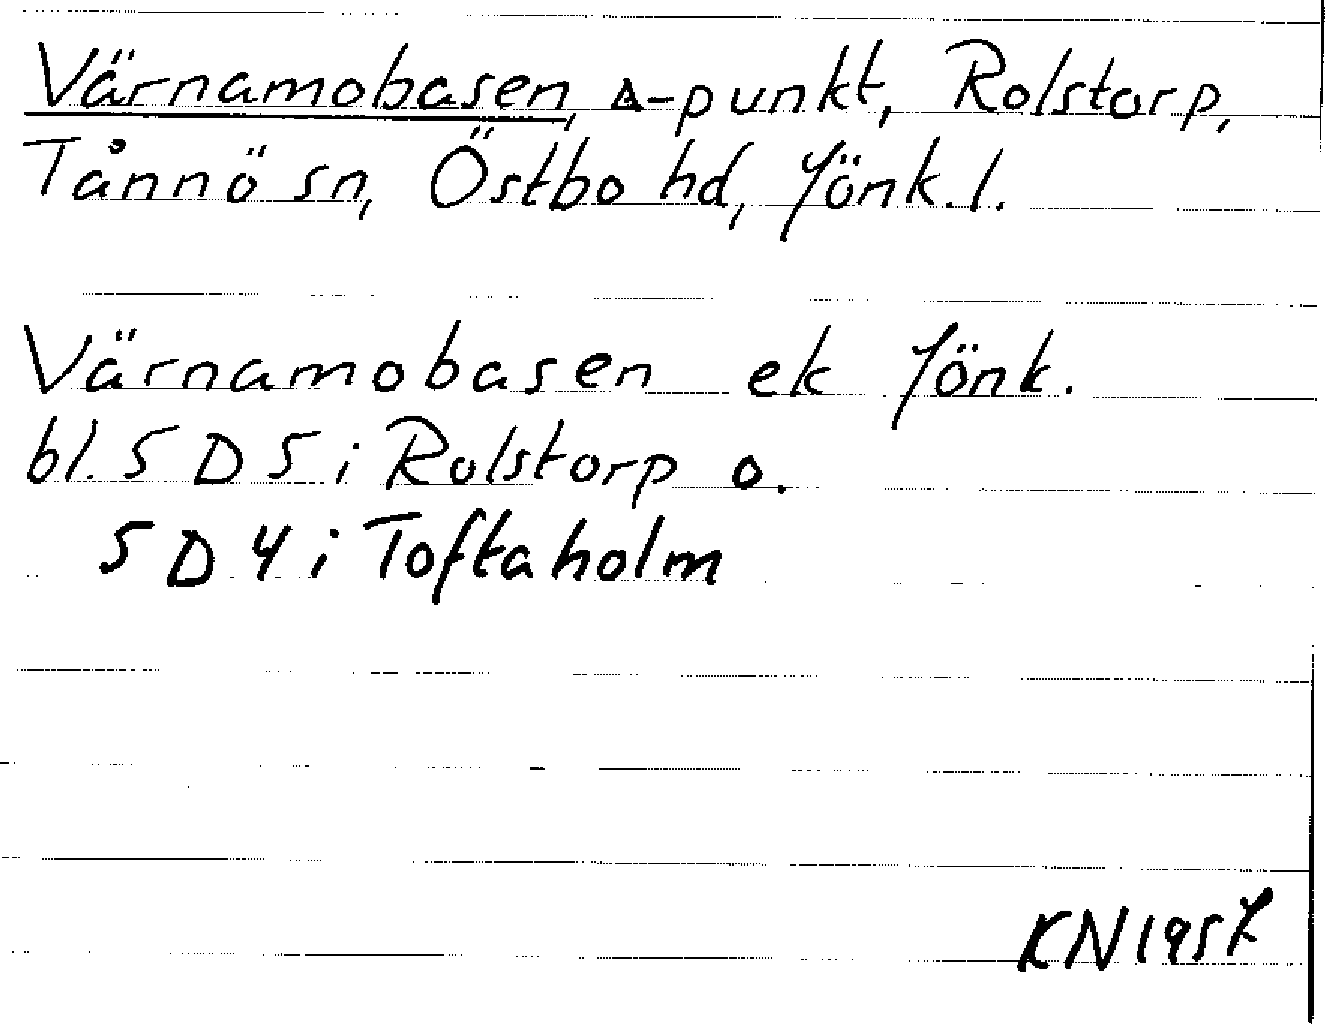 Värnamobasen, Δ-punkt, Rolstorp,
Tånnö sn, Östbo hd, Jönk.l.
Värnamobasen ek Jönk.
bl. 5 D 5 i Rolstorp o.
5 D 4 i Toftaholm
KN 1957